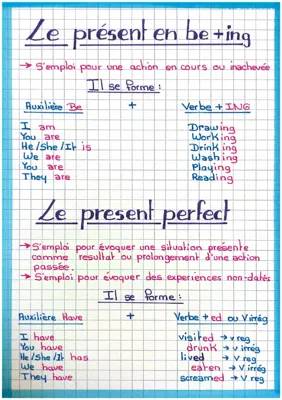 Le présent en be+ing
→ S'emploi pour une action en cours ou inachevée
Il se forme:
Auxilière Be + Verbe + ING
I am Drawing
You are Working
He/She/It is Drinking
We are Washing
You are Playing
They are Reading
Le present perfect
→ S'emploi pour évoquer une situation présente
comme resultat ou prolongement d'une action
passée.
→ S'emploi pour évoquer des experiences non-datés
Il se forme:
Auxilière Have + Verbe + ed ou V irrég
I have visited → v reg
You have drunk → V irrég
He/She/It has lived → v reg
We have eaten → V irrég
They have screamed → v reg